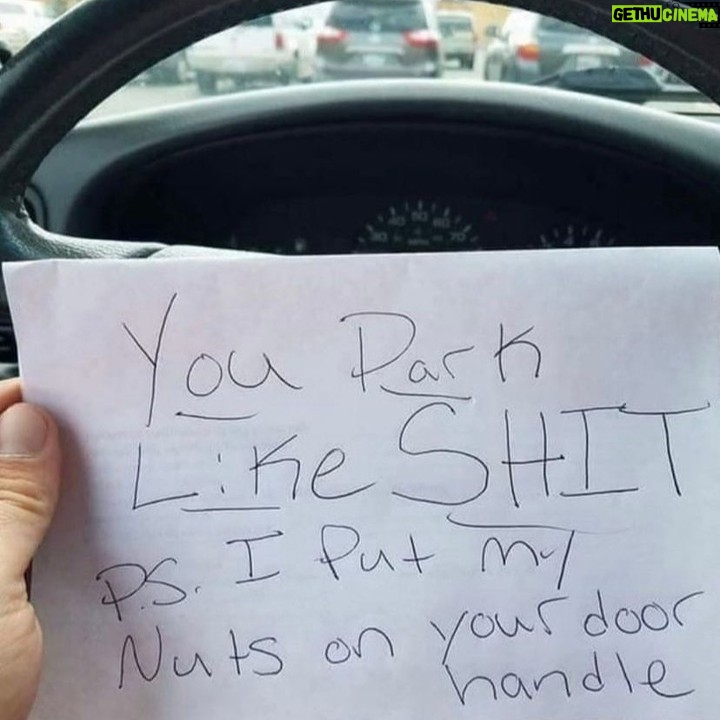 GETHUCINEMA
You Park
Like SHIT
P.S. I Put my
Nuts on your door
handle